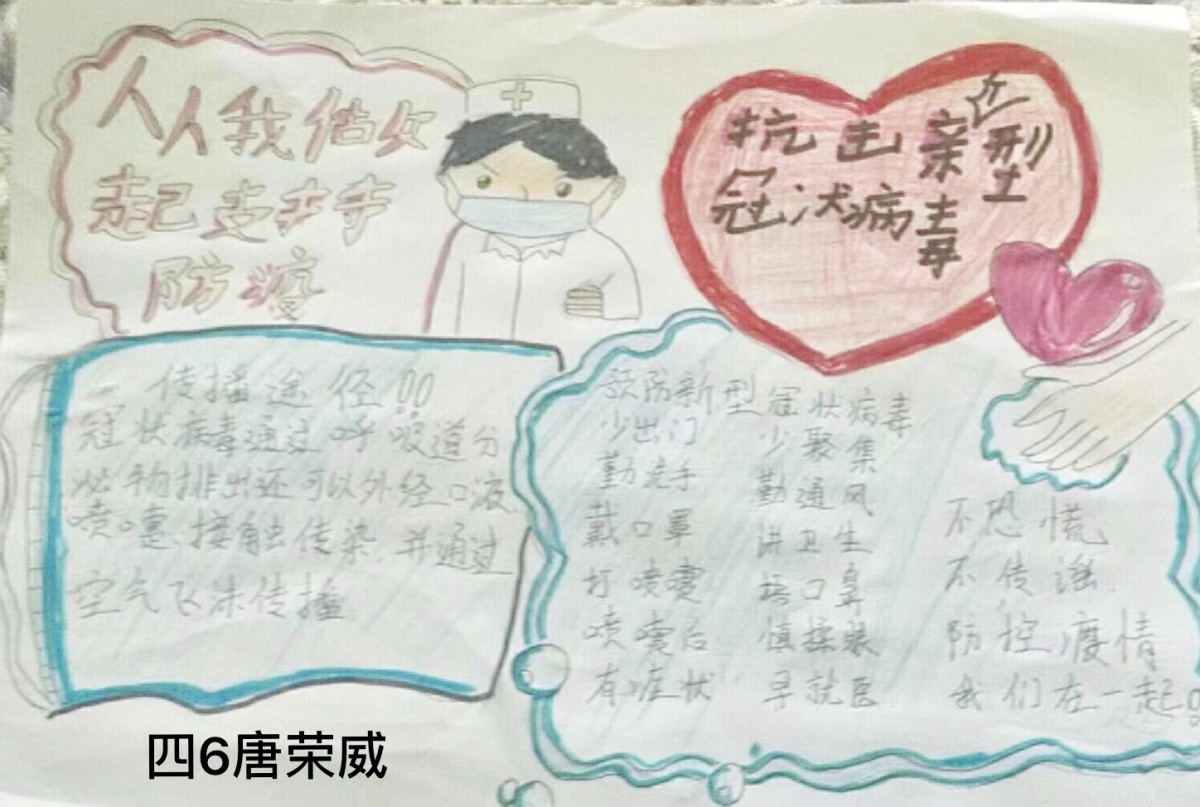 人人我
起支
防疫
抗击新型
冠状病毒
传播途径!!
冠状病毒通过呼吸道分
泌物排出还可以外经口液
喷嚏、接触传染.并通过
空气飞沫传播
预防新型冠状病毒
少出门 少聚集
勤洗手 勤通风
戴口罩 讲卫生
打喷嚏 捂口鼻
喷嚏后 慎揉眼
有症状 早就医
不恐慌
不传谣.
防控疫情
我们在一起
四6唐荣威